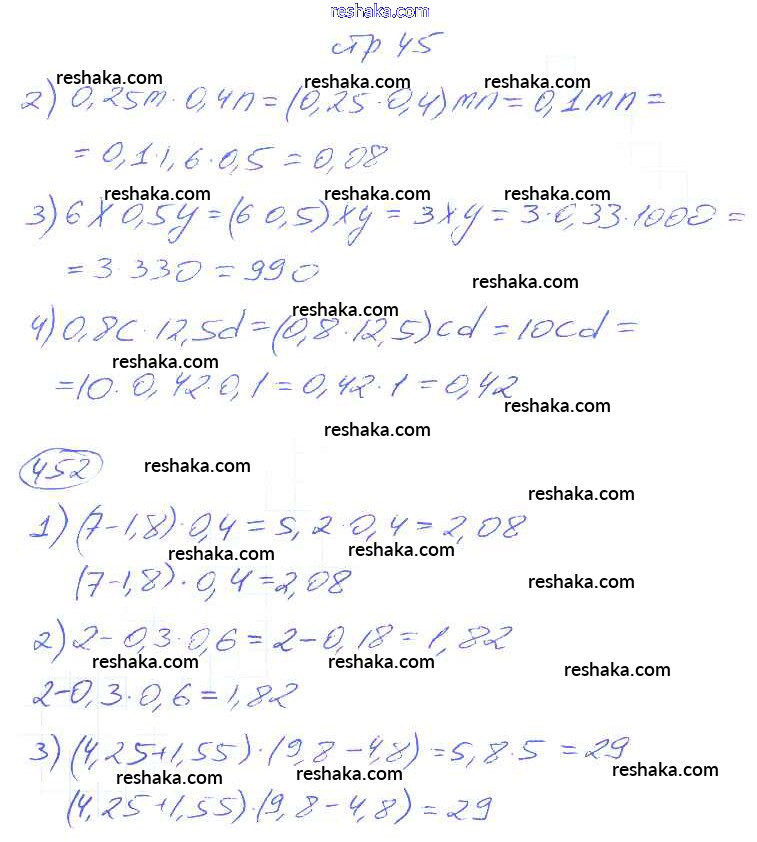 reshaka.com
стр 45
reshaka.com reshaka.com reshaka.com
2) 0,25m · 0,4n = (0,25 · 0,4) mn = 0,1mn =
= 0,1 · 1,6 · 0,5 = 0,08
reshaka.com reshaka.com reshaka.com
3) 6 x 0,5y = (6 0,5) xy = 3 xy = 3 · 0,33 · 1000 =
= 3 · 330 = 990
reshaka.com
reshaka.com
4) 0,8c · 12,5d = (0,8 · 12,5) cd = 10cd =
reshaka.com
= 10 · 0,42 · 0,1 = 0,42 · 1 = 0,42
reshaka.com
reshaka.com
452
reshaka.com
reshaka.com
1) (7-1,8) · 0,4 = 5,2 · 0,4 = 2,08
reshaka.com reshaka.com
(7-1,8) · 0,4 = 2,08
reshaka.com
2) 2 - 0,3 · 0,6 = 2 - 0,18 = 1,82
reshaka.com reshaka.com reshaka.com
2-0,3 · 0,6 = 1,82
3) (4,25+1,55) · (9,8 - 4,8) = 5,8 · 5 = 29
reshaka.com reshaka.com reshaka.com
(4,25+1,55) · (9,8 - 4,8) = 29